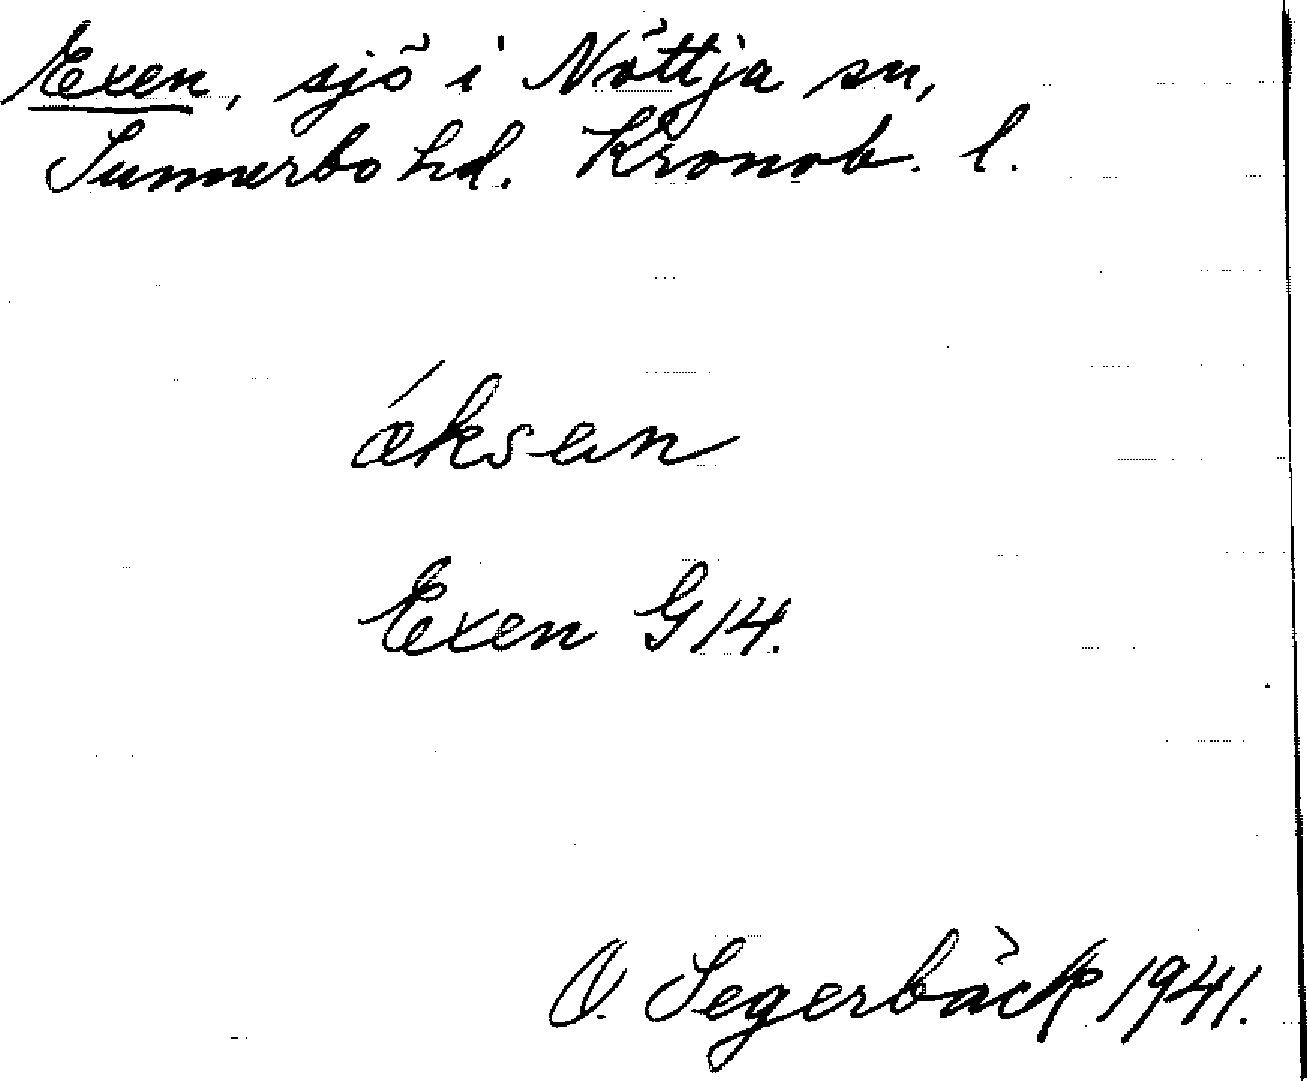 Exen, sjö i Nöttja sn,
Sunnerbo hd. Kronob. l.
ǽksen
Exen G 14.
O. Segerbäck 1941.